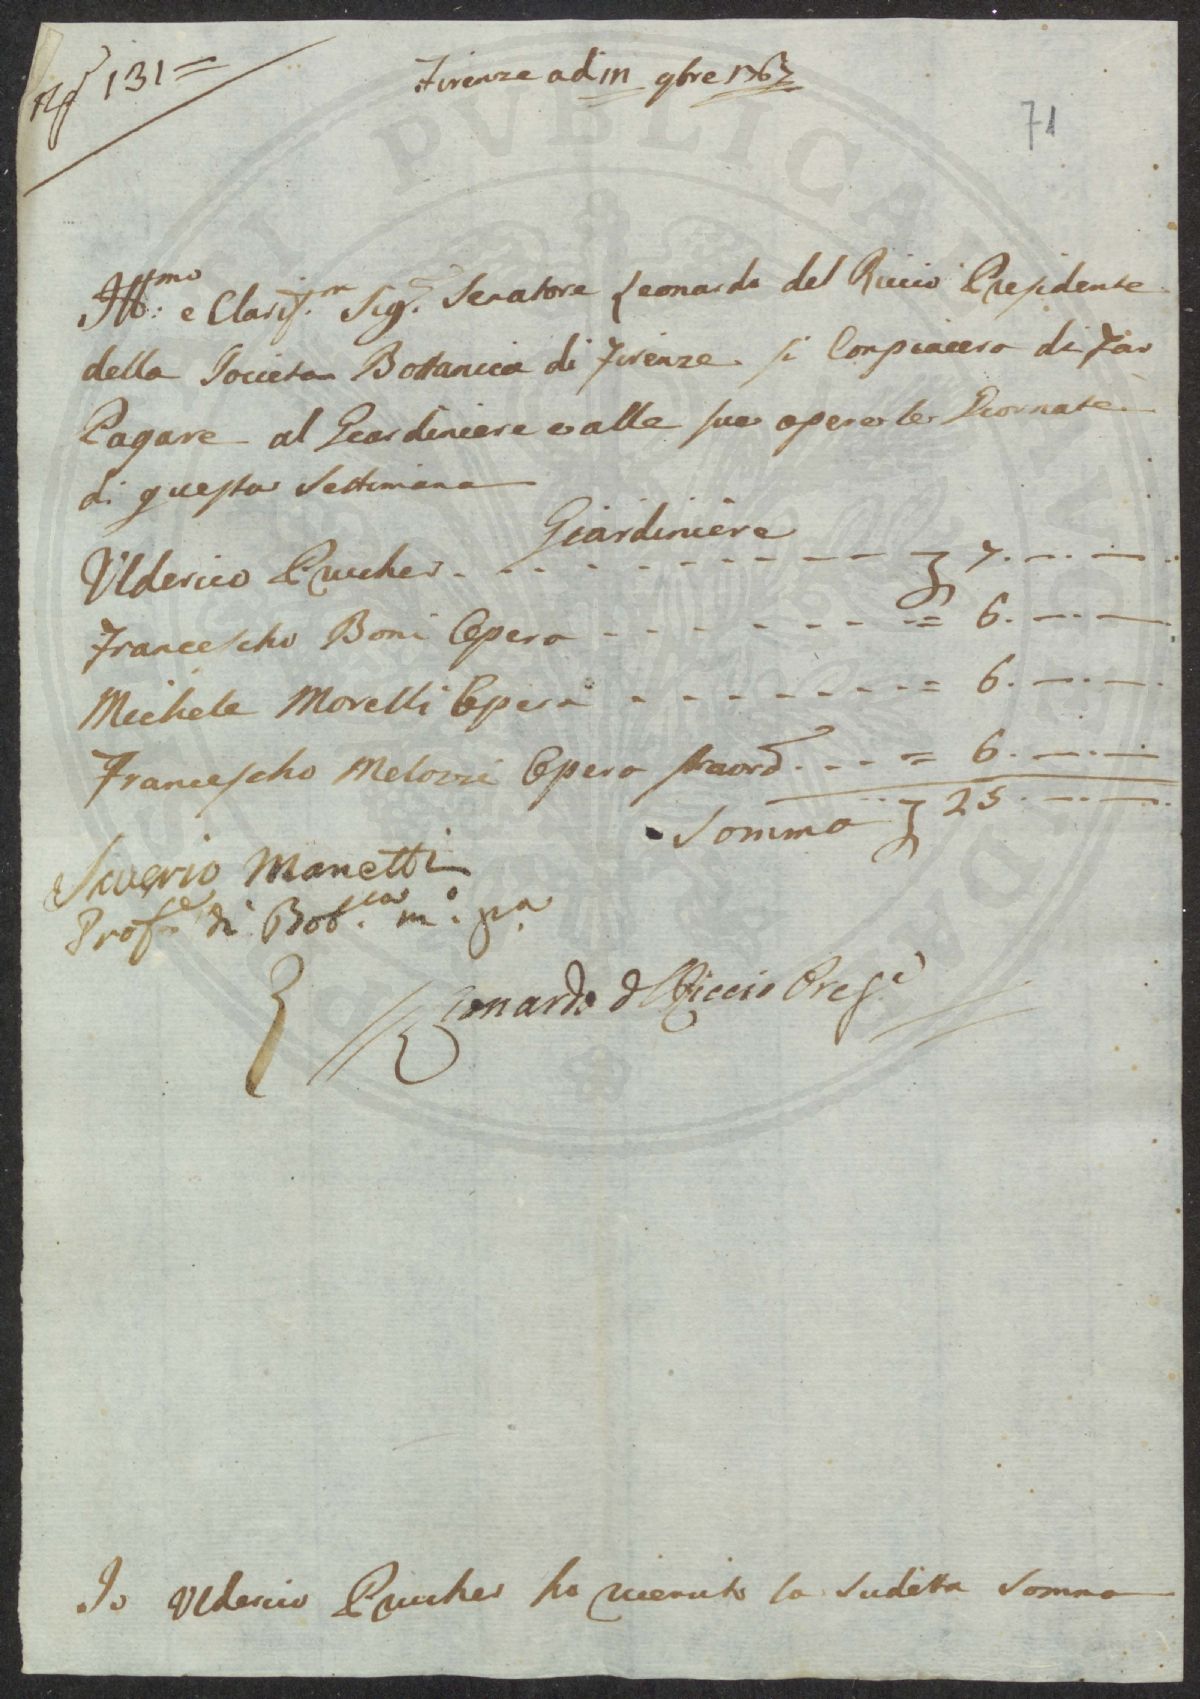 131
Firenze ad 111 9bre 1767
71
Ill:mo e Claris.mo Sig.r Senatore Leonardo del Riccio Presidente
della Societa Bottanica di Firenze si Conpiacera di Far
Pagare al Giardiniere e alle sue opere le Giornate
di questa Settimana
Giardiniere
Ulderico Prucher 7.
Francescho Boni Opera = 6.
Michele Morelli Opera = 6.
Francescho Melozzi Opera straord = 6.
Somma 25
Saverio Manetti
Prof.e di Bot.ca m.o p.a
Leonardo dl Riccio Pres.e
Io Ulderico Prucher ho riceuto la sudetta somma